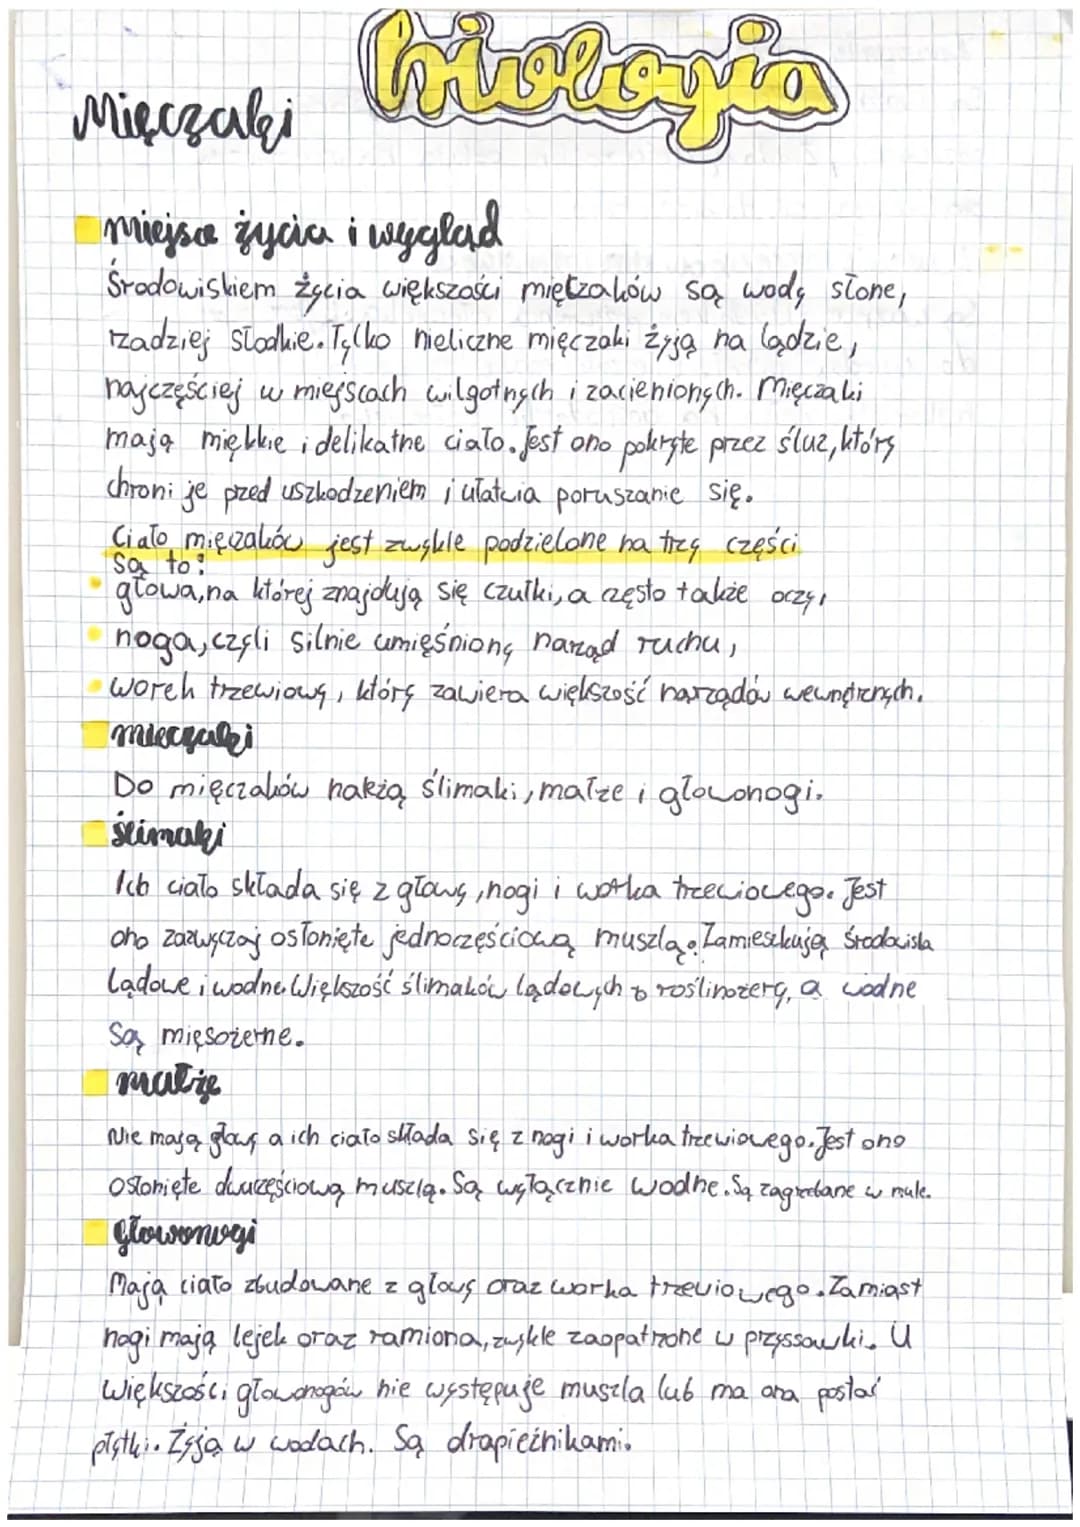 biologia
Mięczaki
miejsce życia i wygląd
Środowiskiem życia większości mięczaków są wody słone,
rzadziej słodkie. Tylko nieliczne mięczaki żyją na lądzie,
najczęściej w miejscach wilgotnych i zacienionych. Mięczaki
mają miękkie i delikatne ciało. Jest ono pokryte przez śluz, który
chroni je przed uszkodzeniem i ułatwia poruszanie się.
Ciało mięczaków jest zwykle podzielone na trzy części
Są to:
głowa, na której znajdują się czułki, a często także oczy,
noga, czyli silnie umięśniony narząd ruchu,
worek trzewiowy, który zawiera większość narządów wewnętrznych.
mięczaki
Do mięczaków należą ślimaki, małże i głowonogi.
ślimaki
Ich ciało składa się z głowy, nogi i worka trzewiowego. Jest
ono zazwyczaj osłonięte jednoczęściową muszlą. Zamieszkują środowiska
lądowe i wodne. Większość ślimaków lądowych to roślinożercy, a wodne
są mięsożerne.
małże
Nie mają głowy a ich ciało składa się z nogi i worka trzewiowego. Jest ono
osłonięte dwuczęściową muszlą. Są wyłącznie wodne. Są zagrzebane w mule.
głowonogi
Mają ciało zbudowane z głowy oraz worka trzewiowego. Zamiast
nogi mają lejek oraz ramiona, zwykle zaopatrzone w przyssawki. U
większości głowonogów nie występuje muszla lub ma ona postać
płytki. Żyją w wodach. Są drapieżnikami.